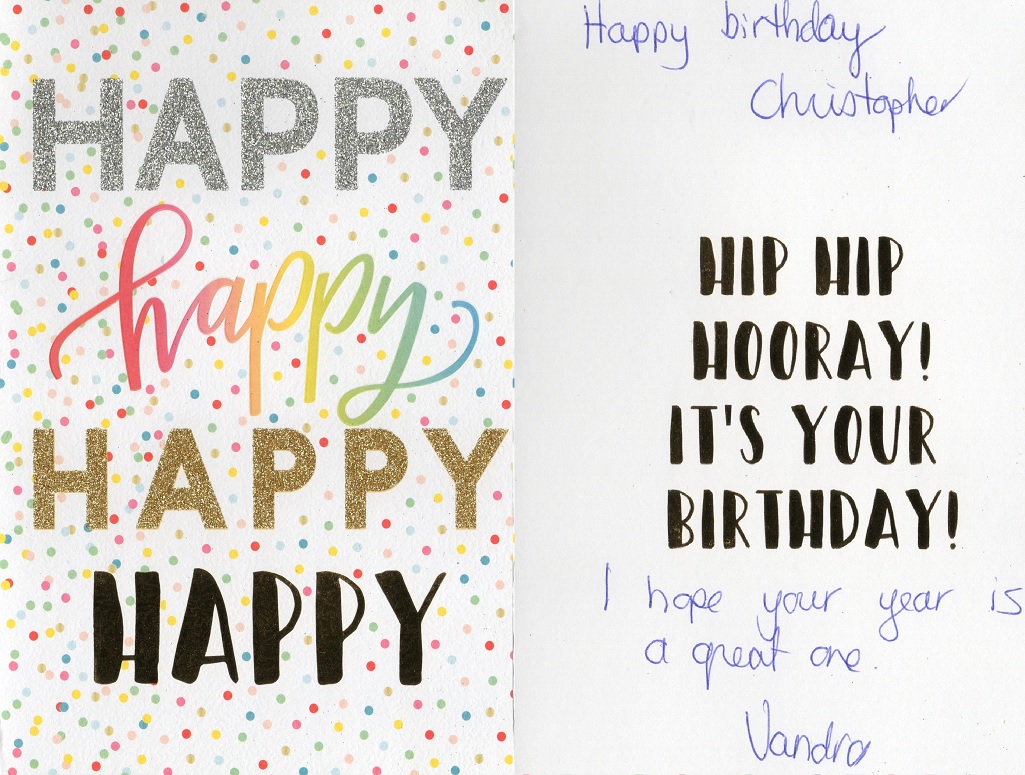 HAPPY
happy
HAPPY
HAPPY
Happy birthday
Christopher
HIP HIP
HOORAY!
IT'S YOUR
BIRTHDAY!
I hope your year is
a great one.
Vandra